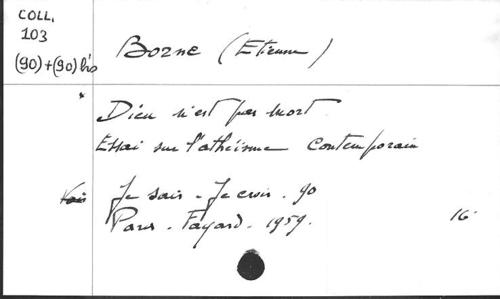 COLL.
103
(90)+(90) bis
Borne (Etienne)
* Dieu n'est pas mort
Essai sur l'athéisme contemporain
Je sais - Je crois. 90
Paris - Fayard - 1959. 16°